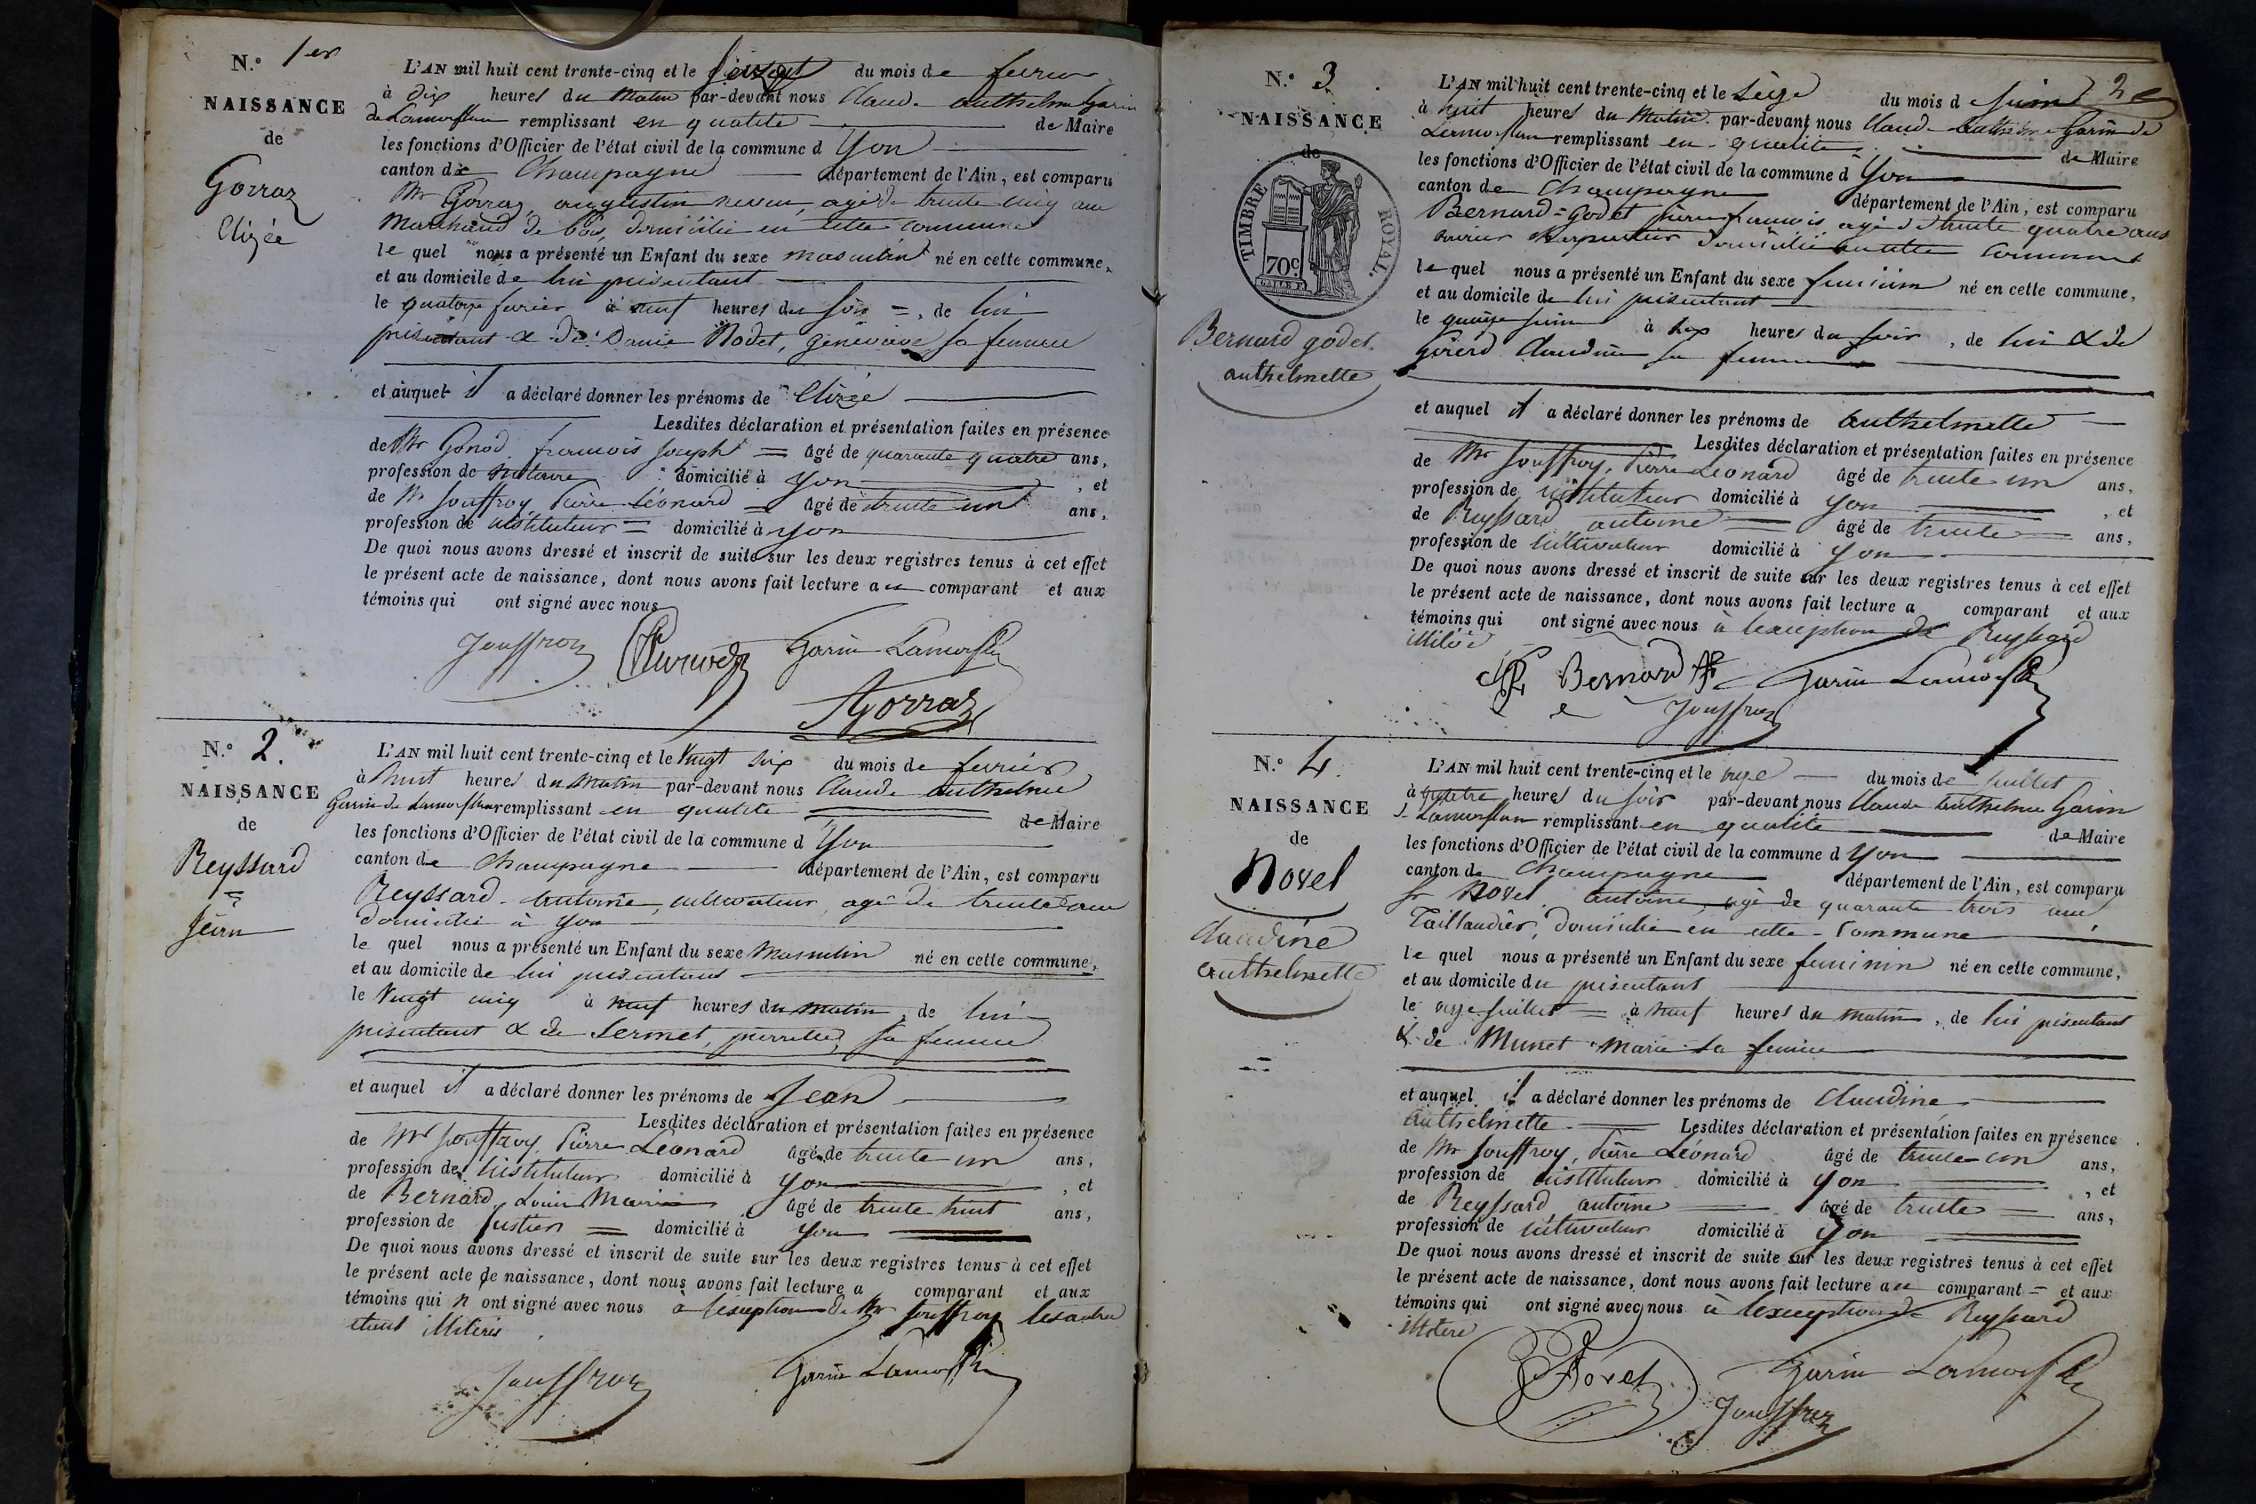 N.° 1er
NAISSANCE
de
Gorraz
Elizée
L'AN mil huit cent trente-cinq et le du mois de fevrier
à dix heures du matin par-devant nous Claude anthelme Garin
de Lamorflan remplissant en qualité de Maire
les fonctions d'Officier de l'état civil de la commune d Yon
canton de Champagne département de l'Ain, est comparu
Mr Gorraz, augustin neveu, agé de trente cinq ans
Marchand de bois, domicilié en cette commune
le quel nous a présenté un Enfant du sexe masculin né en cette commune,
et au domicile de lui présentant
le quatorze fevrier à neuf heures du soir =, de lui
présentant & de Dame Rodet, geneviève sa femme
et auquel il a déclaré donner les prénoms de Elizée
Lesdites déclaration et présentation faites en présence
de Mr Gonod françois joseph = âgé de quarante quatre ans,
profession de notaire domicilié à yon , et
de Mr Jouffroy Pierre Léonard = âgé de trente un ans,
profession de instituteur = domicilié à yon
De quoi nous avons dressé et inscrit de suite sur les deux registres tenus à cet effet
le présent acte de naissance, dont nous avons fait lecture au comparant et aux
témoins qui ont signé avec nous
Jouffroy Garin Lamorflan
Gorraz
N.° 2.
NAISSANCE
de
Reyssard
=
Jean
L'AN mil huit cent trente-cinq et le Vingt six du mois de fevrier
à huit heures du matin par-devant nous Claude anthelme
Garin de Lamorflan remplissant en qualité de Maire
les fonctions d'Officier de l'état civil de la commune d Yon
canton de Champagne département de l'Ain, est comparu
Reyssard antoine, cultivateur, agé de trente ans
domicilié à yon
le quel nous a présenté un Enfant du sexe Masculin né en cette commune,
et au domicile de lui présentant
le Vingt cinq à neuf heures du matin, de lui
présentant & de Sermet, pierrette, sa femme
et auquel il a déclaré donner les prénoms de Jean
Lesdites déclaration et présentation faites en présence
de Mr Jouffroy Pierre Léonard âgé de trente un ans,
profession de instituteur domicilié à yon , et
de Bernard, Louis Marie âgé de trente huit ans,
profession de justier = domicilié à yon
De quoi nous avons dressé et inscrit de suite sur les deux registres tenus à cet effet
le présent acte de naissance, dont nous avons fait lecture a comparant et aux
témoins qui n ont signé avec nous à l'exception de Mr Jouffroy les autres
étant illiterés
Jouffroy Garin Lamorflan
2e
N.° 3
NAISSANCE
de
TIMBRE ROYAL.
70c.
Bernard godet
anthelmette
L'AN mil huit cent trente-cinq et le Seize du mois d juin
à huit heures du matin par-devant nous Claude anthelme Garin de
Lamorflan remplissant en qualité de Maire
les fonctions d'Officier de l'état civil de la commune d Yon
canton de Champagne département de l'Ain, est comparu
Bernard = Godet pierre françois agé de trente quatre ans
ouvrier charpentier domicilié en cette commune
le quel nous a présenté un Enfant du sexe feminin né en cette commune,
et au domicile de lui présentant
le quinze juin à six heures du soir, de lui & de
Girerd Claudine sa femme
et auquel il a déclaré donner les prénoms de anthelmette
Lesdites déclaration et présentation faites en présence
de Mr Jouffroy, Pierre Léonard âgé de trente un ans,
profession de instituteur domicilié à yon , et
de Reyssard antoine âgé de trente ans,
profession de cultivateur domicilié à yon
De quoi nous avons dressé et inscrit de suite sur les deux registres tenus à cet effet
le présent acte de naissance, dont nous avons fait lecture a comparant et aux
témoins qui ont signé avec nous à l'exception de Reyssard
Bernard Garin Lamorflan
Jouffroy
N.° 4.
NAISSANCE
de
Novel
claudine
anthelmette
L'AN mil huit cent trente-cinq et le onze du mois de juillet
à quatre heures du soir par-devant nous Claude anthelme Garin
d. Lamorflan remplissant en qualité de Maire
les fonctions d'Officier de l'état civil de la commune d Yon
canton de Champagne département de l'Ain, est comparu
Sr Novel antoine, agé de quarante trois ans
Taillandier, domicilié en cette commune
le quel nous a présenté un Enfant du sexe feminin né en cette commune,
et au domicile du présentant
le onze juillet = à neuf heures du matin, de lui présentant
& de Munet Marie sa femme
et auquel il a déclaré donner les prénoms de claudine
anthelmette Lesdites déclaration et présentation faites en présence
de Mr Jouffroy, Pierre Léonard âgé de trente-un ans,
profession de instituteur domicilié à yon , et
de Reyssard antoine âgé de trente ans,
profession de cultivateur domicilié à yon
De quoi nous avons dressé et inscrit de suite sur les deux registres tenus à cet effet
le présent acte de naissance, dont nous avons fait lecture au comparant = et aux
témoins qui ont signé avec nous à l'exception de Reyssard
illiteré
Novel Garin Lamorflan
Jouffroy